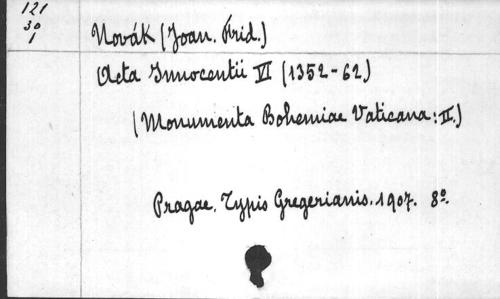 121
30
1
Novák (Joan. Frid.)
Acta Innocentii VI (1352-62)
(Monumenta Bohemiae Vaticana: II.)
Pragae. Typis Gregerianis. 1907. 8º.